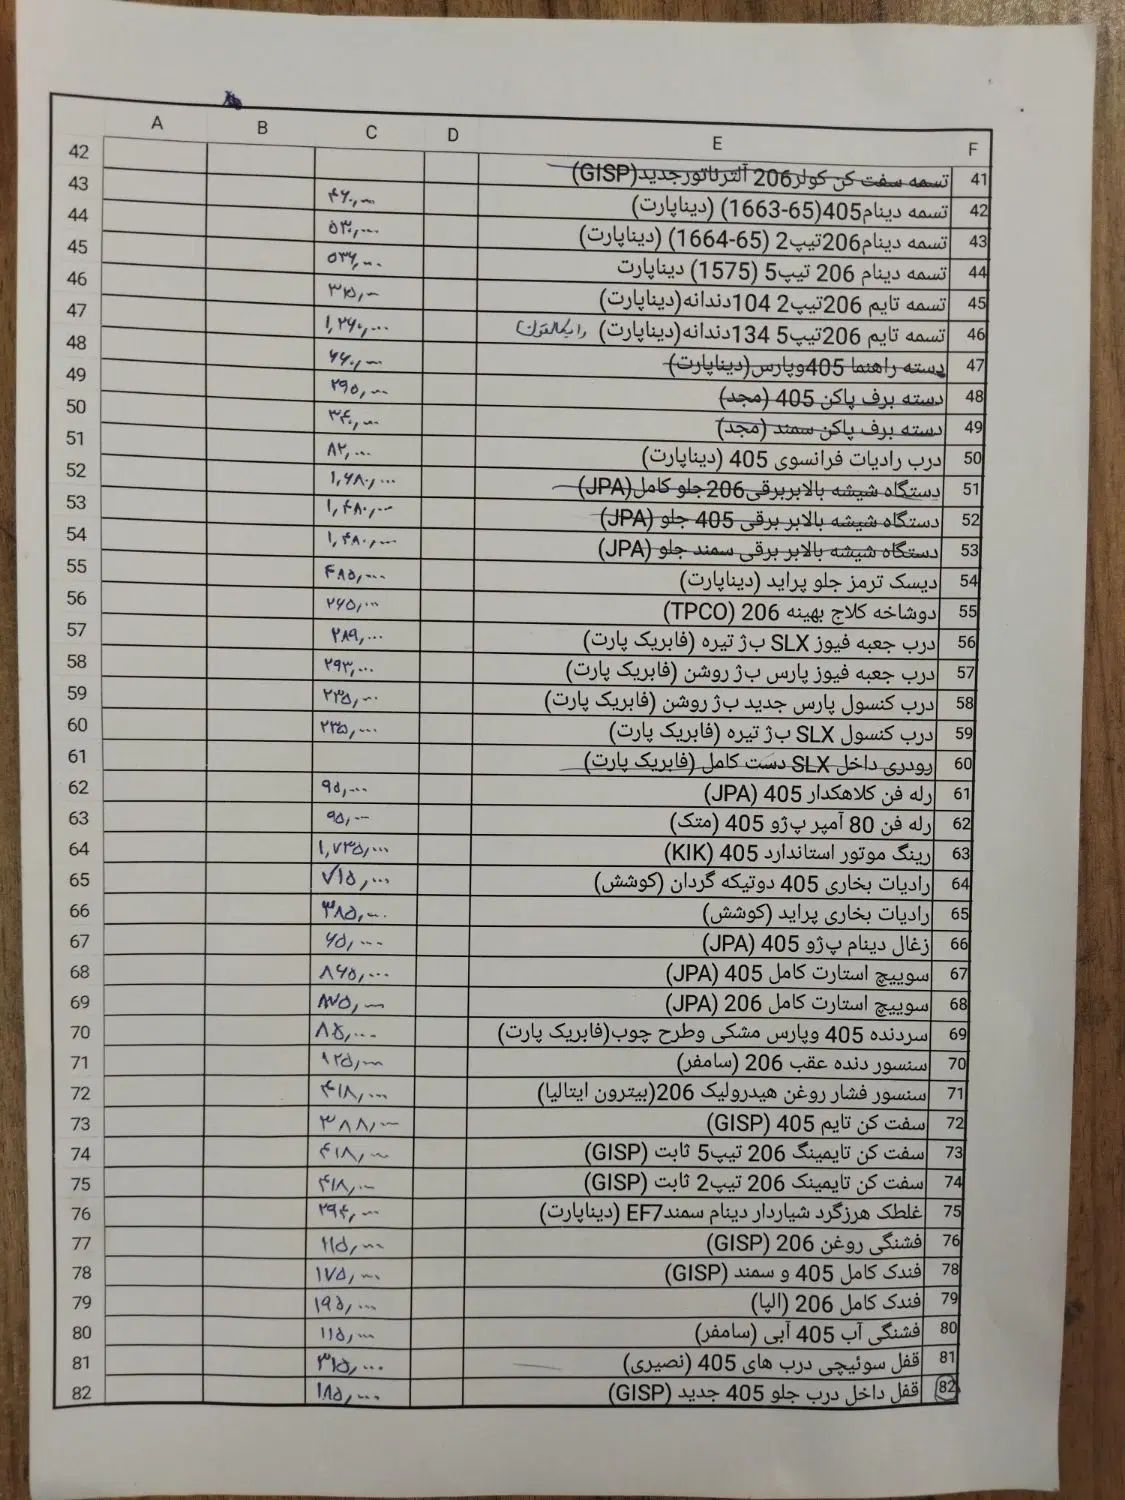 A B C D E F
42 تسمه سفت کن کولر206 آلترناتورجدید(GISP) 41
43 ۴۶۰,۰۰۰ تسمه دینام405(65-1663) (دیناپارت) 42
44 ۵۳۰,۰۰۰ تسمه دینام206تیپ2 (65-1664) (دیناپارت) 43
45 ۵۳۶,۰۰۰ تسمه دینام 206 تیپ5 (1575) دیناپارت 44
46 ۳۱۵,۰۰۰ تسمه تایم 206تیپ2 104دندانه(دیناپارت) 45
47 ۱,۲۶۰,۰۰۰ تسمه تایم 206تیپ5 134دندانه(دیناپارت) 46
48 ۶۶۰,۰۰۰ دسته راهنما 405وپارس(دیناپارت) 47
49 ۲۹۵,۰۰۰ دسته برف پاکن 405 (مجد) 48
50 ۳۴۰,۰۰۰ دسته برف پاکن سمند (مجد) 49
51 ۸۲,۰۰۰ درب رادیات فرانسوی 405 (دیناپارت) 50
52 ۱,۶۸۰,۰۰۰ دستگاه شیشه بالابربرقی206جلو کامل(JPA) 51
53 ۱,۴۸۰,۰۰۰ دستگاه شیشه بالابر برقی 405 جلو (JPA) 52
54 ۱,۴۸۰,۰۰۰ دستگاه شیشه بالابر برقی سمند جلو (JPA) 53
55 ۴۸۵,۰۰۰ دیسک ترمز جلو پراید (دیناپارت) 54
56 ۲۶۵,۰۰۰ دوشاخه کلاج بهینه 206 (TPCO) 55
57 ۲۸۹,۰۰۰ درب جعبه فیوز SLX بژ تیره (فابریک پارت) 56
58 ۲۹۳,۰۰۰ درب جعبه فیوز پارس بژ روشن (فابریک پارت) 57
59 ۲۳۵,۰۰۰ درب کنسول پارس جدید بژ روشن (فابریک پارت) 58
60 ۲۳۵,۰۰۰ درب کنسول SLX بژ تیره (فابریک پارت) 59
61 رودری داخل SLX دست کامل (فابریک پارت) 60
62 ۹۵,۰۰۰ رله فن کلاهکدار 405 (JPA) 61
63 ۹۵,۰۰۰ رله فن 80 آمپر پژو 405 (متک) 62
64 ۱,۷۳۵,۰۰۰ رینگ موتور استاندارد 405 (KIK) 63
65 ۷۱۵,۰۰۰ رادیات بخاری 405 دوتیکه گردان (کوشش) 64
66 ۳۸۵,۰۰۰ رادیات بخاری پراید (کوشش) 65
67 ۶۵,۰۰۰ زغال دینام پژو 405 (JPA) 66
68 ۸۶۵,۰۰۰ سوییچ استارت کامل 405 (JPA) 67
69 ۸۷۵,۰۰۰ سوییچ استارت کامل 206 (JPA) 68
70 ۸۵,۰۰۰ سردنده 405 وپارس مشکی وطرح چوب(فابریک پارت) 69
71 ۱۲۵,۰۰۰ سنسور دنده عقب 206 (سامفر) 70
72 ۴۱۸,۰۰۰ سنسور فشار روغن هیدرولیک 206(بیترون ایتالیا) 71
73 ۳۸۸,۰۰۰ سفت کن تایم 405 (GISP) 72
74 ۴۱۸,۰۰۰ سفت کن تایمینگ 206 تیپ5 ثابت (GISP) 73
75 ۴۱۸,۰۰۰ سفت کن تایمینک 206 تیپ2 ثابت (GISP) 74
76 ۲۹۴,۰۰۰ غلطک هرزگرد شیاردار دینام سمندEF7 (دیناپارت) 75
77 ۱۱۵,۰۰۰ فشنگی روغن 206 (GISP) 76
78 ۱۷۵,۰۰۰ فندک کامل 405 و سمند (GISP) 78
79 ۱۹۵,۰۰۰ فندک کامل 206 (الپا) 79
80 ۱۱۵,۰۰۰ فشنگی آب 405 آبی (سامفر) 80
81 ۳۱۵,۰۰۰ قفل سوئیچی درب های 405 (نصیری) 81
82 ۱۸۵,۰۰۰ قفل داخل درب جلو 405 جدید (GISP) 82